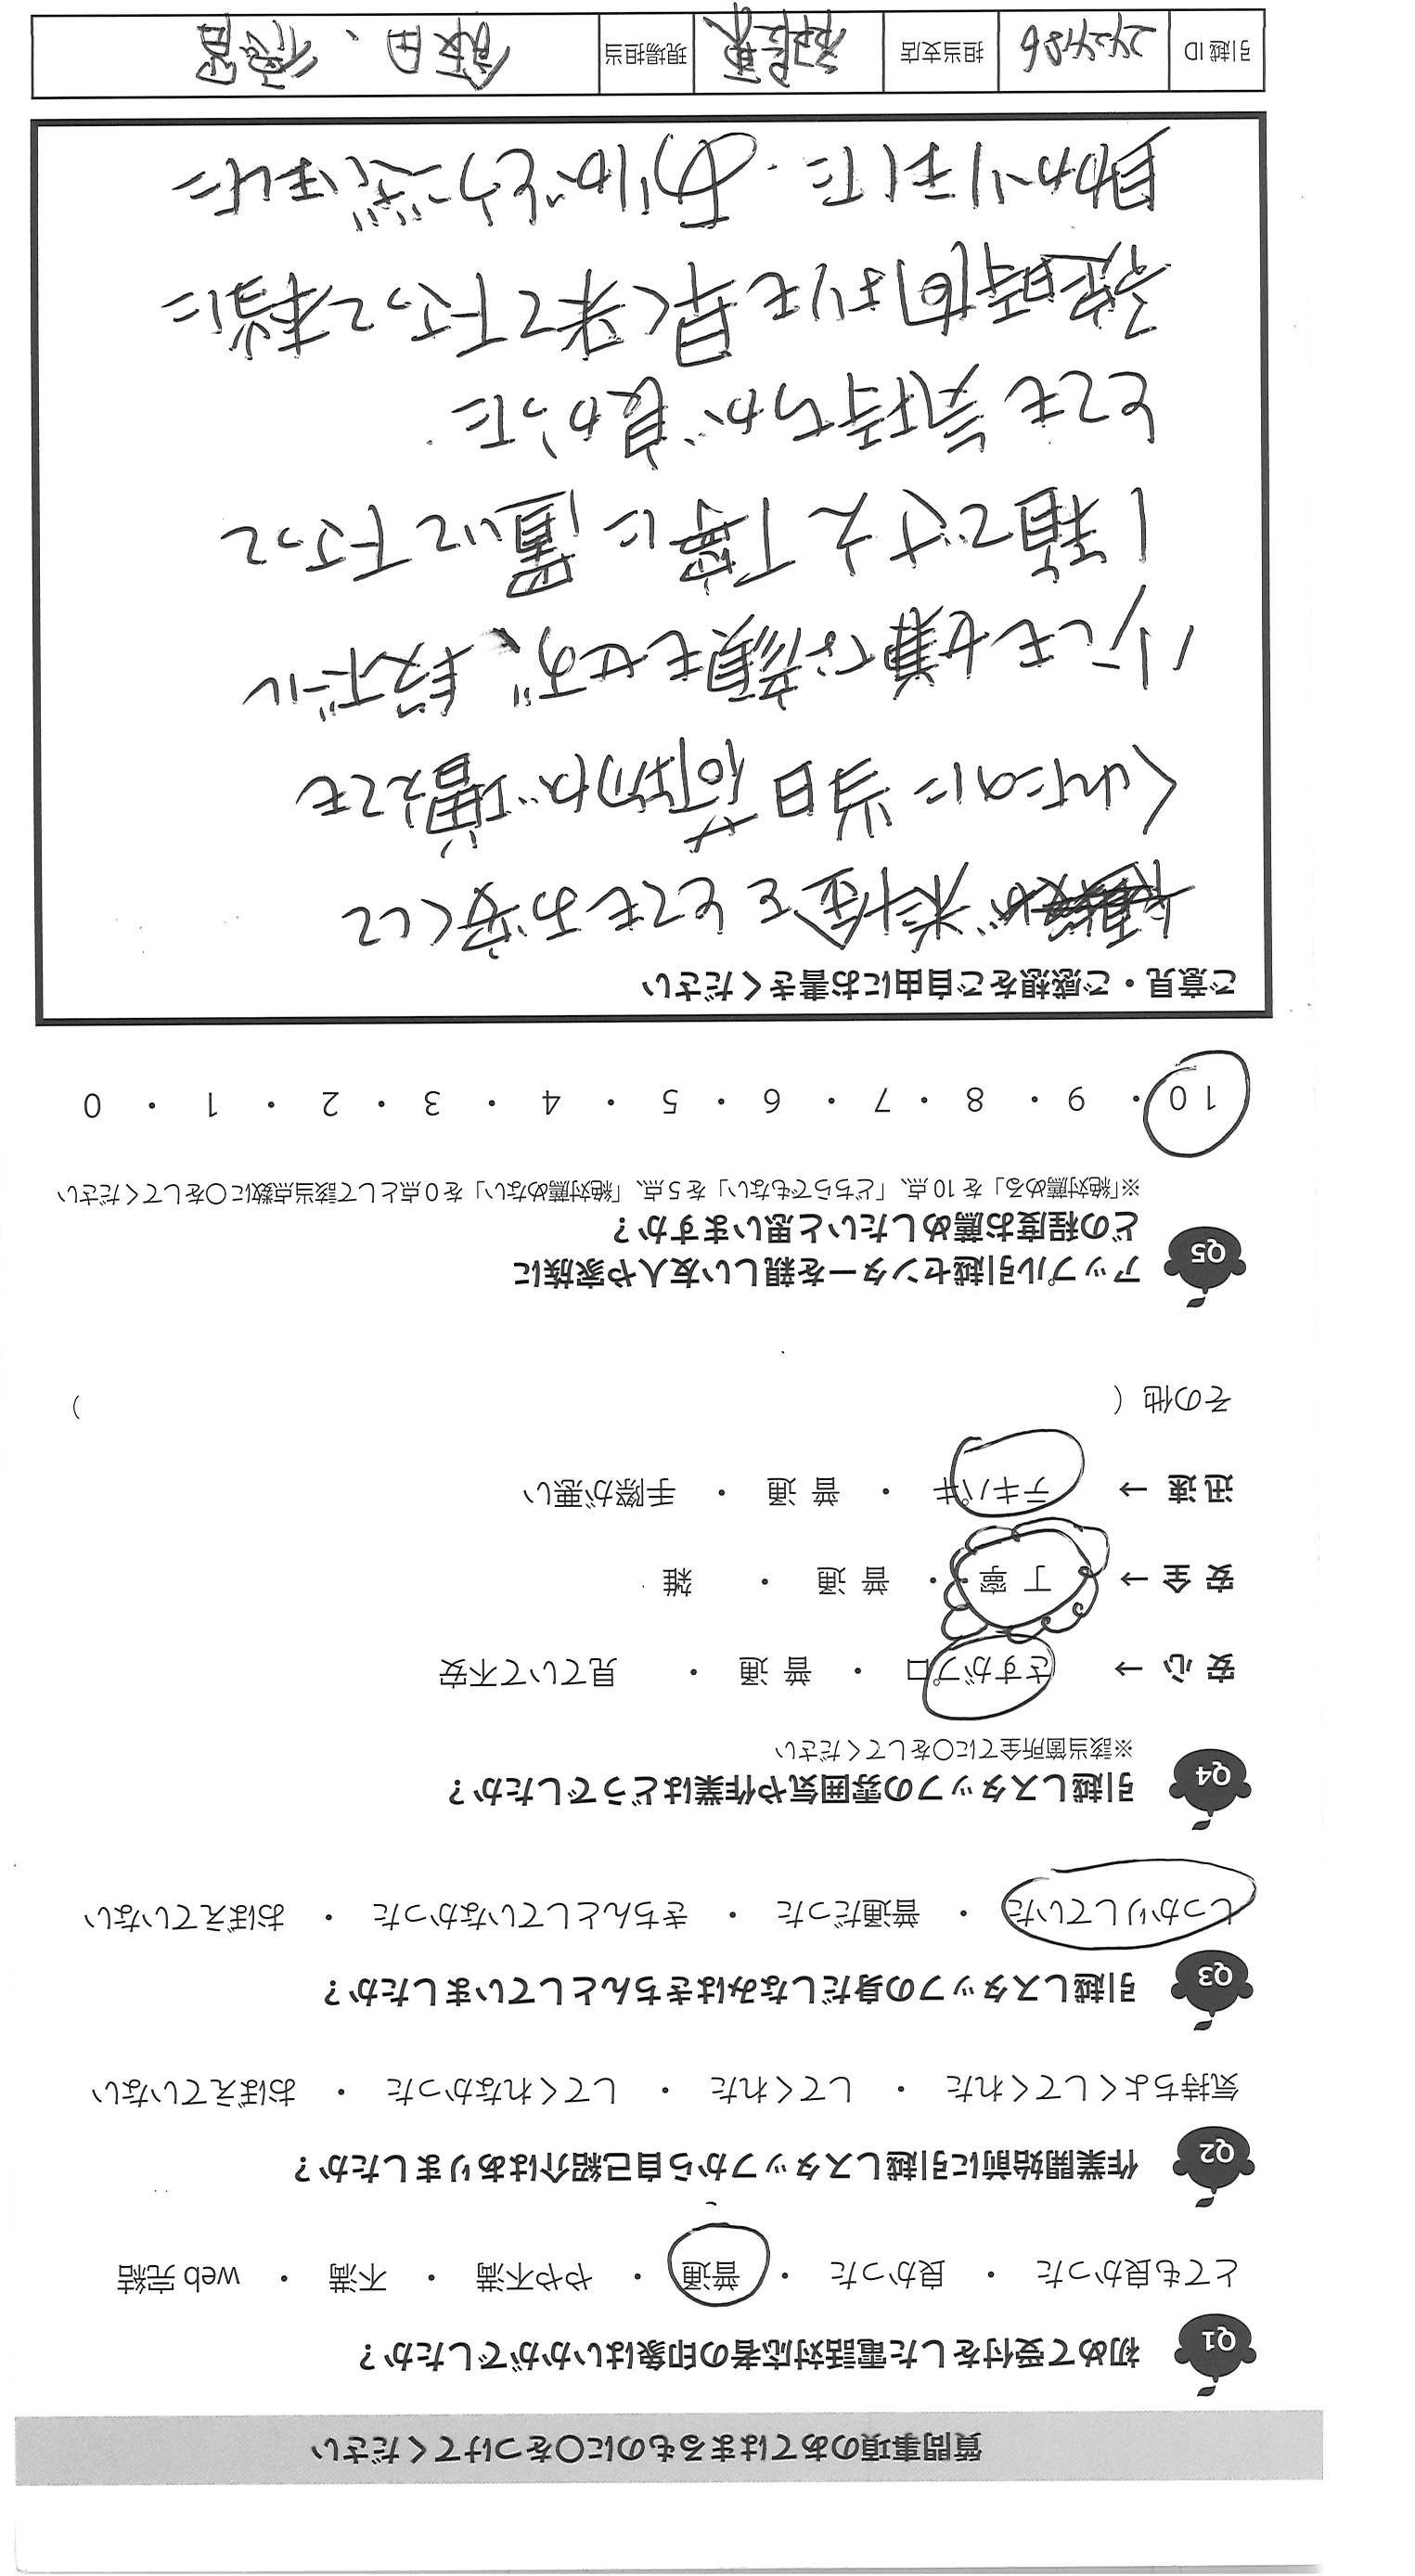 質問事項のあてはまるものに〇をつけてください
Q1 初めて受付をした電話対応者の印象はいかがでしたか？
とても良かった ・ 良かった ・ 普通 ・ やや不満 ・ 不満 ・ web 完結
Q2 作業開始前に引越しスタッフから自己紹介はありましたか？
気持ちよくしてくれた ・ してくれた ・ してくれなかった ・ おぼえていない
Q3 引越しスタッフの身だしなみはきちんとしていましたか？
しっかりしていた ・ 普通だった ・ きちんとしていなかった ・ おぼえていない
Q4 引越しスタッフの雰囲気や作業はどうでしたか？
※該当箇所全てに〇をしてください
安心 → さすがプロ ・ 普通 ・ 見ていて不安
安全 → 丁寧 ・ 普通 ・ 雑
迅速 → テキパキ ・ 普通 ・ 手際が悪い
その他（ ）
Q5 アップル引越センターを親しい友人や家族に
どの程度お薦めしたいと思いますか？
※「絶対薦める」を 10 点、「どちらでもない」を 5 点、「絶対薦めない」を 0 点として該当点数に〇をしてください
10 ・ 9 ・ 8 ・ 7 ・ 6 ・ 5 ・ 4 ・ 3 ・ 2 ・ 1 ・ 0
ご意見・ご感想をご自由にお書きください
料金をとてもお安くして
くれたのに当日荷物が増えても
少しも嫌な顔もせず、段ボール
1箱でさえ丁寧に置いて下さって
とても気持ちが良かった.
予定時間よりも早く来て下さって本当に
助かりました. ありがとうございました
引越 ID 242486 担当支店 神奈東 現場担当 飯田、徳留